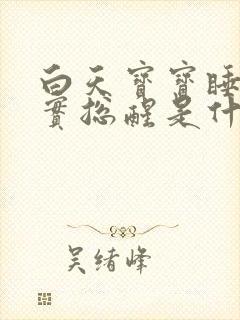 白天寶寶睡
實總醒是什
吴绪峰